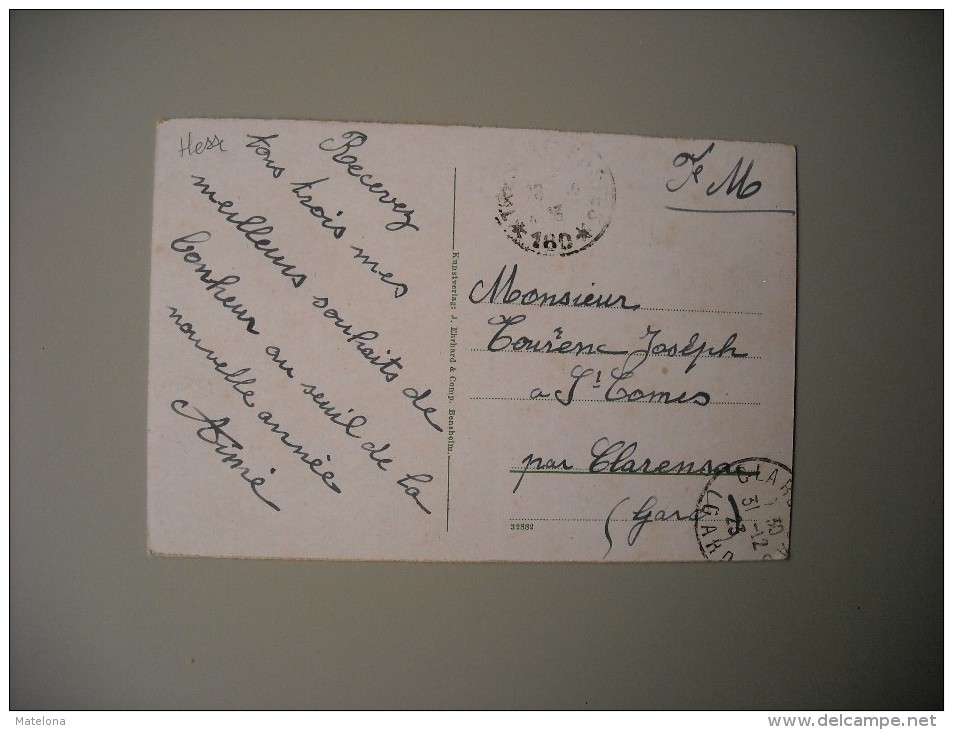 Hess
Recevez
tous trois mes
meilleurs souhaits de
bonheur au seuil de la
nouvelle année
Aimé
Kunstverlag: J. Ehrhard & Comp. Bensheim.
32882
*180*
F M
Monsieur
Tourenc Joseph
a St Comes
par Clarensac
(Gard
CLAR
31 -12
23
GARD
Matelona
www.delcampe.net